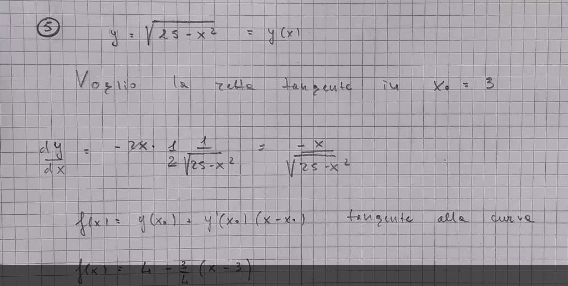 5 y = √25 - x² = y(x)
Voglio la retta tangente in x₀ = 3
dy/dx = - 2x · 1/2 1/√25-x² = -x/√25-x²
f(x) = y(x₀) + y'(x₀) (x-x₀) tangente alla curva
f(x) = 4 - 3/4 (x - 3)